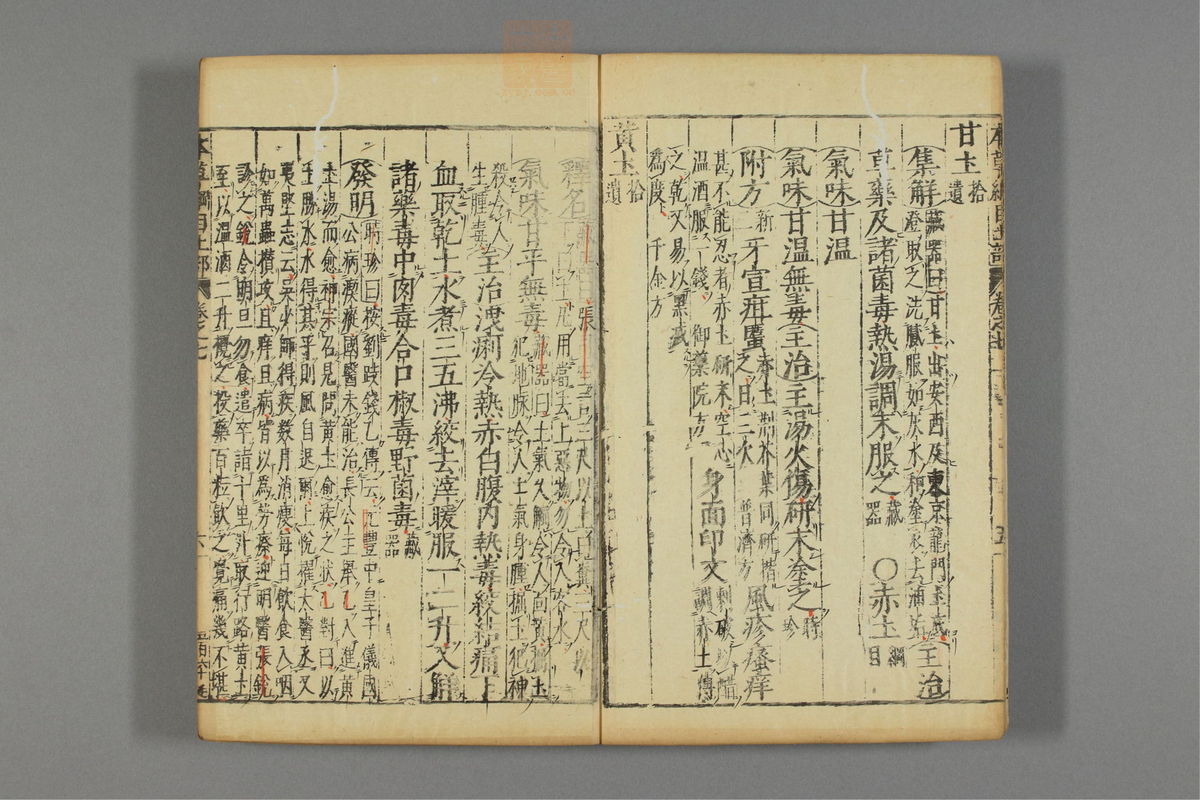 甘土 拾遺
集解 藏器曰甘土出安西及東京龍門土底
澄取之洗膩服如灰水和塗衣上油
主治
草藥及諸菌毒熱湯調末服之 藏器 〇赤土 綱目
氣味甘溫
氣味甘溫無毒主治主湯火傷研末塗之 時珍
附方 新二 牙宣疳䘌 赤土荆芥葉同研揩
之日二次 普濟方
風疹瘙痒
甚不能忍者赤土研末空心
溫酒服一錢 御藥院方
身面印文 刺破以醋
調赤土傅
之乾又易以黑滅
爲度 千金方
黃土 拾遺
釋名
氣味甘平無毒 藏器曰土氣久觸令人面黃掘土
犯地脉令人上氣身腫掘土犯神
殺令人
生腫毒
主治洩痢冷熱赤白腹內熱毒絞結痛下
血取乾土水煮三五沸絞去滓暖服一二升入解
諸藥毒中肉毒合口椒毒野菌毒 藏器
發明 時珍曰按劉跂錢乙傳云元豐中皇子儀國
公病瘈瘲國醫未能治長公主舉乙入進黃
土湯而愈神宗召見問黃土愈疾之狀乙對曰以
土勝水水得其平則風自退爾上悅擢太醫丞又
夷堅志云吳少師得疾數月消瘦每日飲食入咽
如萬蟲攢攻且痒且痛皆以爲勞瘵迎明醫張銳
診之銳令明旦勿食遣卒詣十里外取行路黃土
至以溫酒二升攪之投藥百粒飲之覺痛幾不堪